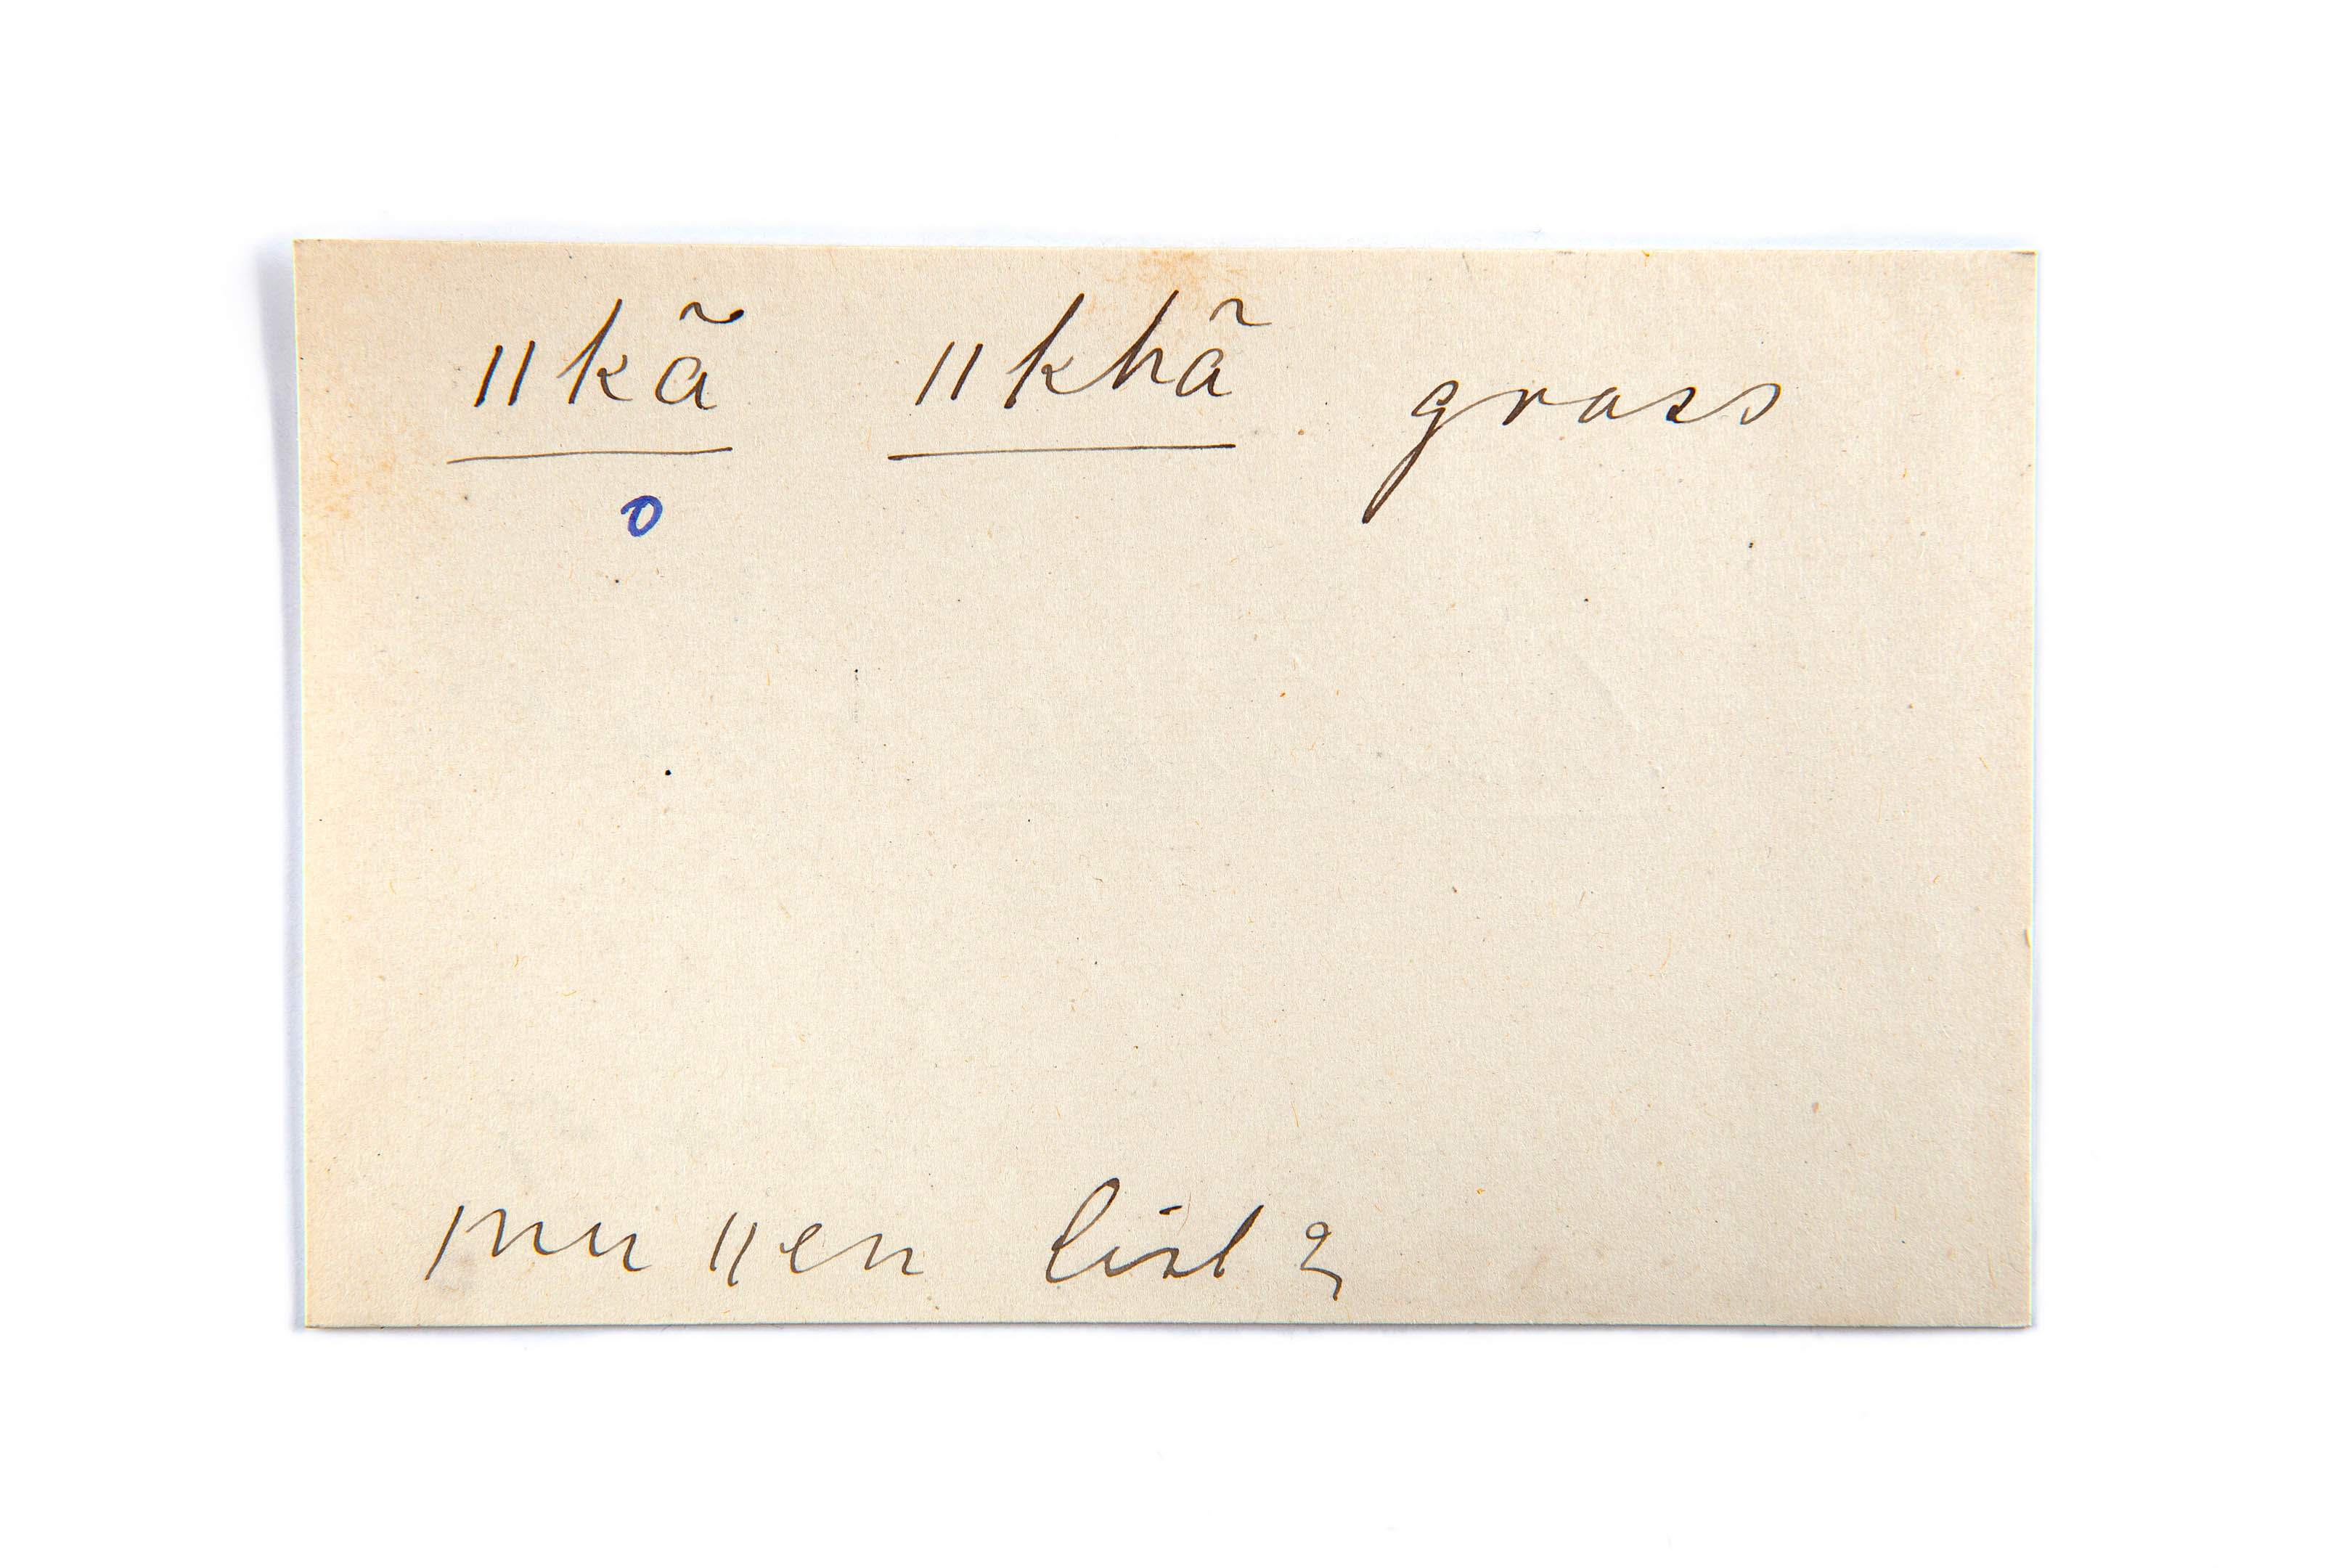 ǁkã ǁkhã grass
o
ǀnu ǁen list 2